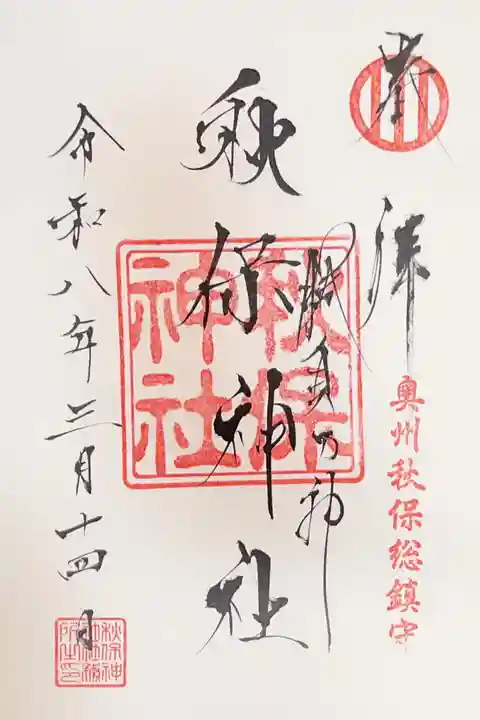 奉拝
奥州秋保総鎮守
戦勝の神
秋保神社
秋保神社
令和八年三月十四日
秋保神社務所之印